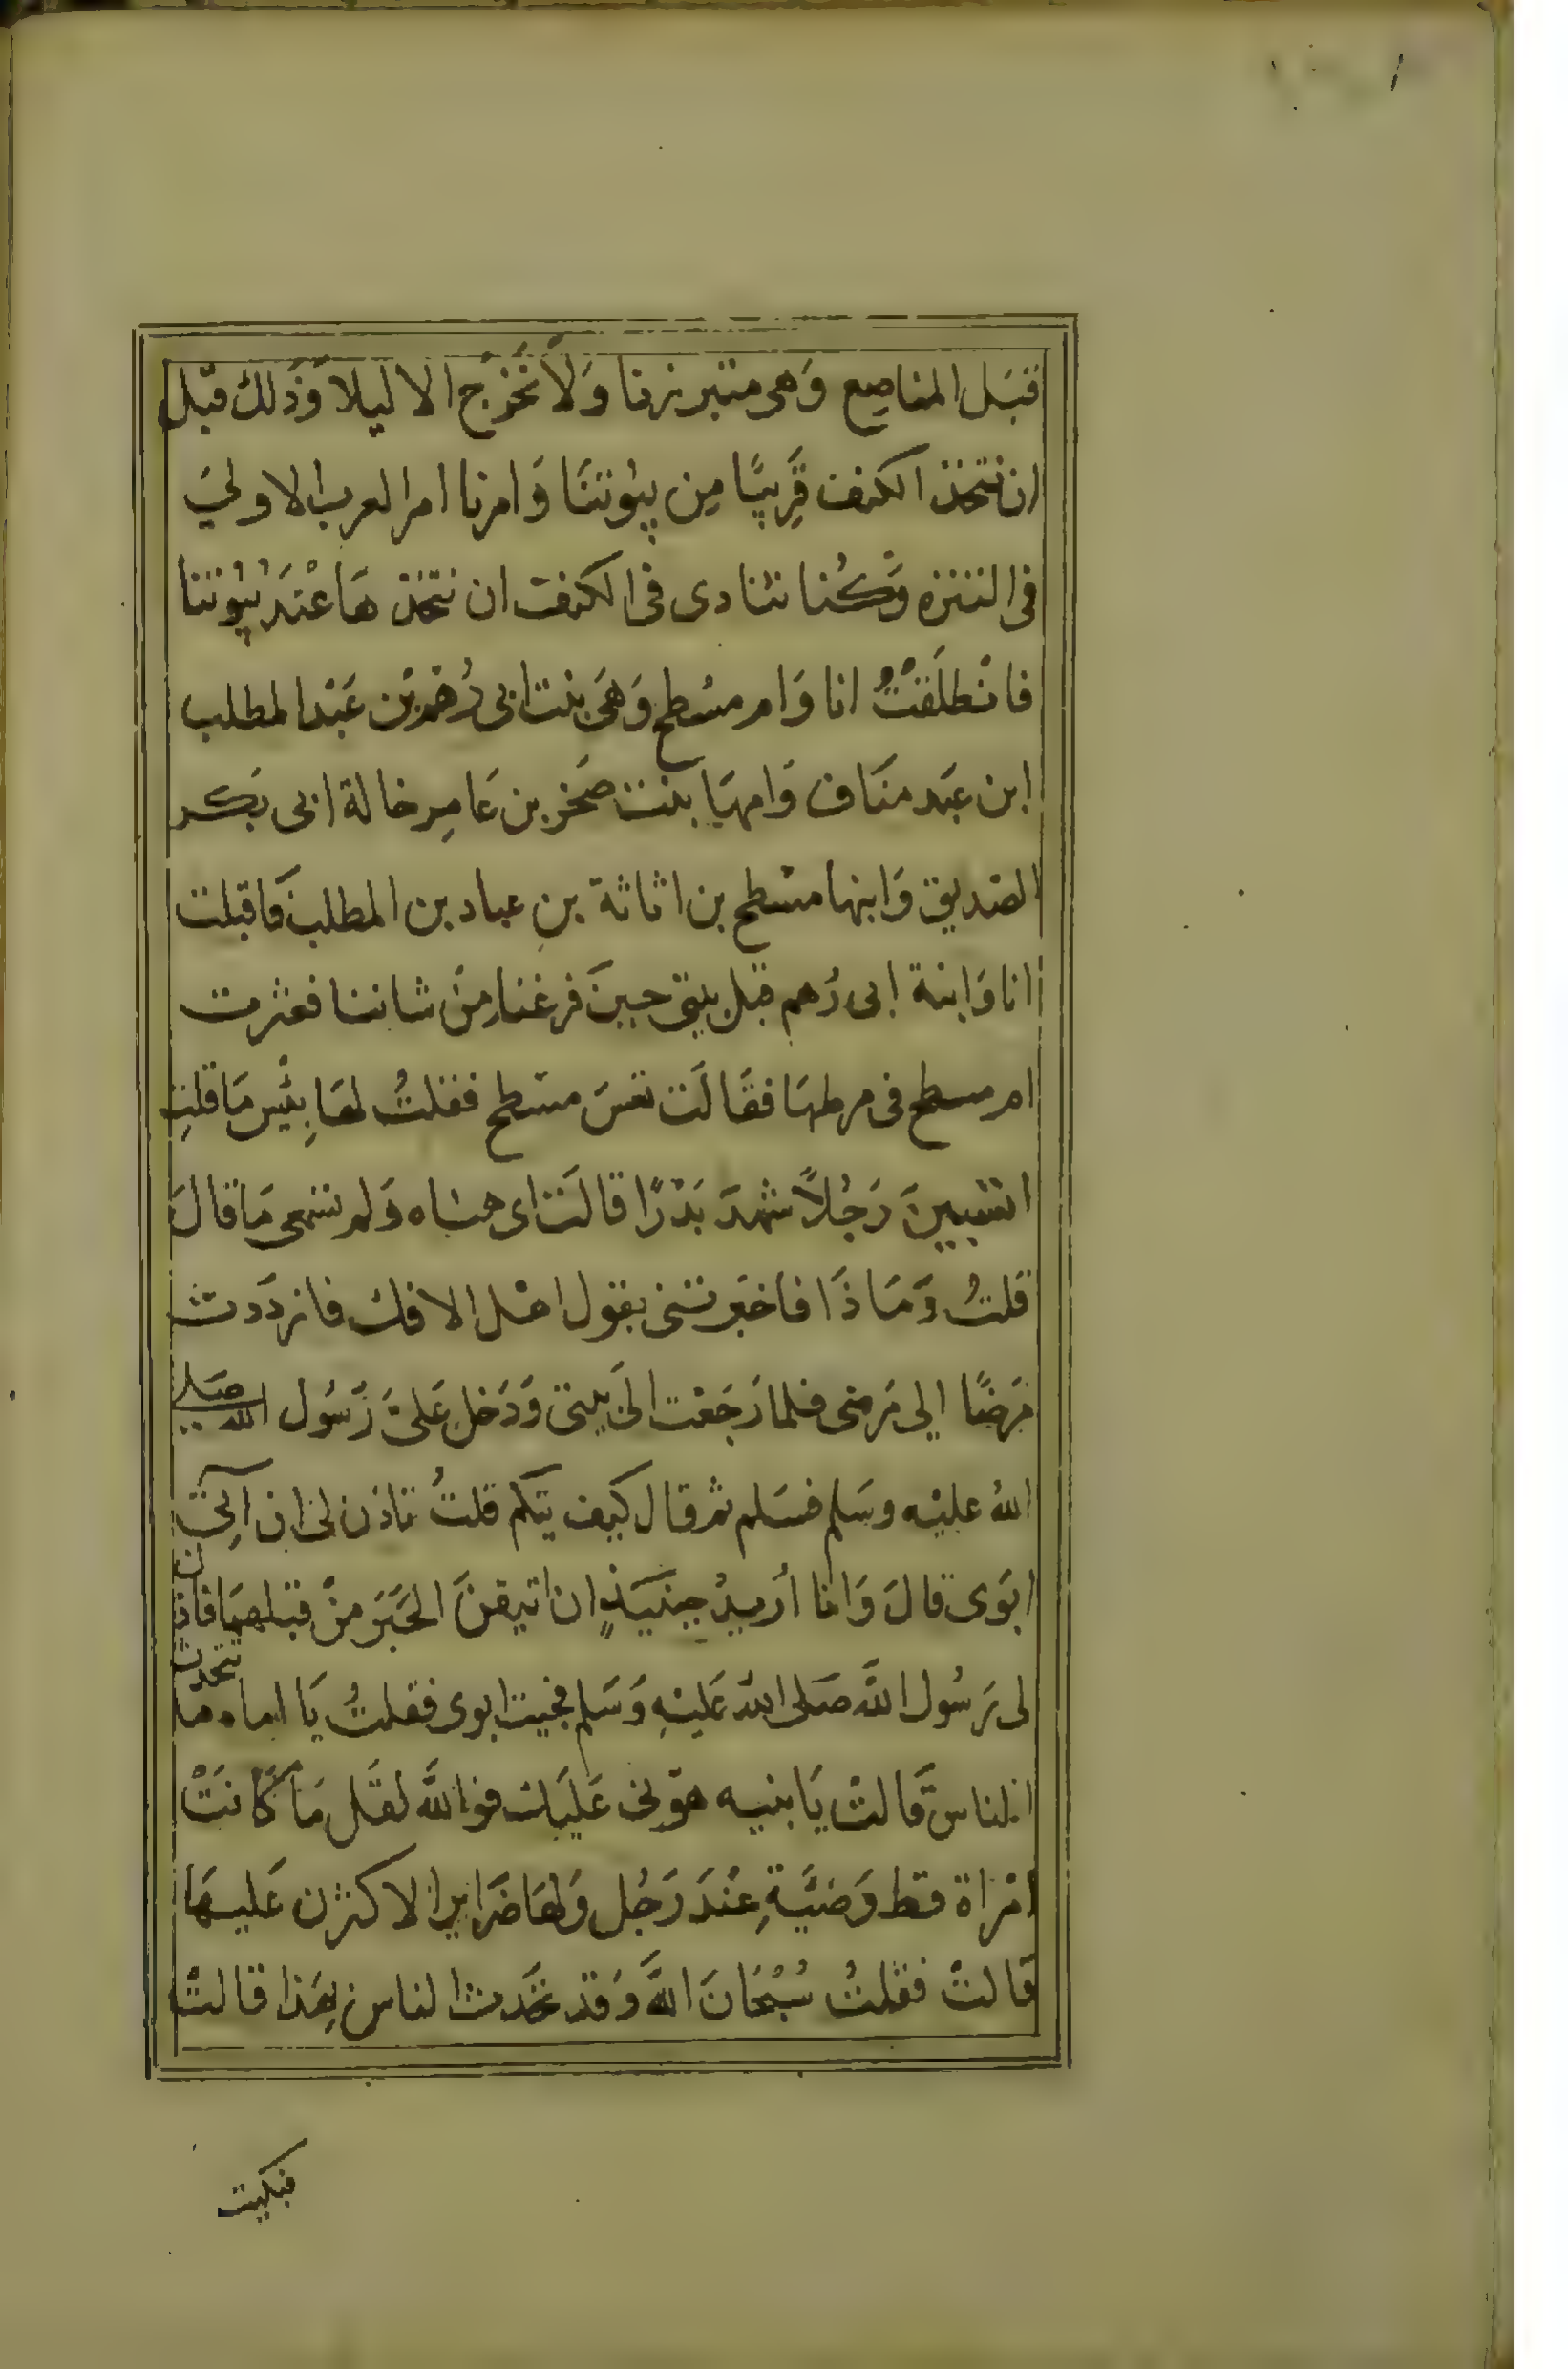 قبَل المناصِع وَهى متبرزنا وَلاَ نَخْرُج الا ليلا وَذَلك قبْل
ان نتخذ الكنف قَرِيبًا مِن بيُوتنَا وَامرنا امر العرب الاولىَ
فى التنزه وَكُنا نتادى فى الكنف ان نتخذ هَا عْنَد بُيُوتنا
فانْطلَقْتُ انا وَام مسْطح وَهىَ بنت ابى رُهْم بْن عَبْد المطلب
ابن عَبد منَاف وَامهَا بنت صَخر بن عَامِر خالة ابى بَكر
الصَديق وَابنها مسْطح بن اثاثة بنِ عباد بن المطلب فَاقبلت
انا وَابنة ابى رُهم قبل بيتى حينَ فرغنا مِنْ شاننا فعثرت
ام مسطح فى مرطهَا فقَالَت تعسَ مسْطح فقلتُ لهَا بِئْس مَا قلتِ
اتسبينَ رَجُلاً شهدَ بَدْرًا قالَت اى هنتاه وَلم تسْمعى مَا قالَ
قلتُ وَمَا ذَا فاخبَرتنى بقول اهْل الافك فازدَدت
مَرضًا الى مَرضى فلما رَجَعْت الىَ بيتى وَدَخل عَلىَّ رَسُول الله صَلى
اللهُ عليْه وسَلم فسَلم ثم قال كيف تيكم قلتُ تاذن لى ان آتِى
ابَوى قالَ وَانا أريدُ حِينَئِذٍ ان اتيقنَ الخَبَرَ مِنْ قبلهمَا فاذن
لى رَسُول اللَّه صَلى اللهُ عَليْهِ وَسَلم فجيت ابوى فقلتُ يَا اماه ما يتحدث
الناس قَالتْ يَا بنيه هوّنى عَليَك فو اللَّه لقَل مَا كَانَتْ
امْراة قط وَضيَّةِ عنْدَ رَجُل وَلهَا ضَرَاير الا كثرن عَليهَا
قالتْ فقلتُ سُبْحَانَ اللَّه وَقد تحَدث الناس بِهَذا قالتْ
فبكيت